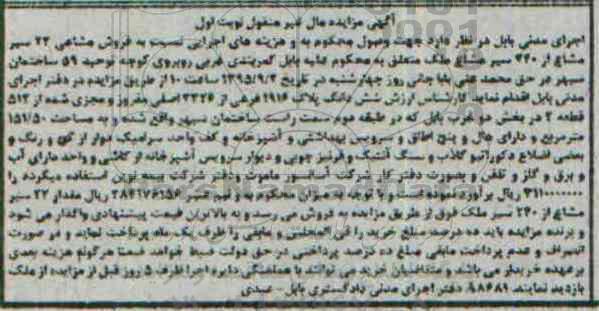 آگهی مزایده مال غیر منقول نوبت اول
اجرای مدنی بابل در نظر دارد جهت وصول محکوم به و هزینه های اجرایی نسبت به فروش مشاعی ۲۲ سیر
مشاع از ۲۴۰ سیر ششدانگ ملک متعلق به محکوم علیه بابل کمربندی غربی روبروی کوچه توحید ۵۹ ساختمان
سپهر در حق محمد علی بابا جانی روز چهارشنبه در تاریخ ۱۳۹۵/۹/۳ ساعت ۱۰ از طریق مزایده در دفتر اجرای
مدنی بابل اقدام نماید کارشناس ارزش شش دانگ پلاک ۲۹۱۴ فرعی از ۳۳۲۶ اصلی مفروز و مجزی شده از ۵۱۳
قطعه ۲ در بخش دو غرب بابل که در طبقه دوم سمت راست ساختمان سپهر واقع شده و به مساحت ۱۵۱/۵۰
مترمربع و دارای هال و پنج اطاق و سرویس بهداشتی و آشپزخانه و کف واحد سرامیک دیوار از گچ و رنگ و
بعضی اضلاع دکوراتیو کلاب و سنگ آنتیک و قرنیز چوبی و دیوار سرویس آشپزخانه از کاشی و واحد دارای آب
و برق و گاز و تلفن و بصورت دفتر کار شرکت آسانسور ماموت ودفتر شرکت بیمه نوین استفاده میگردد را
۳۱۱۰۰۰۰۰۰۰ ریال برآورد نموده است و با توجه به میزان محکوم به و نیم عشر ۲۸۴۱۷۶۱۵۶ ریال مقدار ۲۲ سیر
مشاع از ۲۴۰ سیر ملک فوق از طریق مزایده به فروش می رسد و به بالاترین قیمت پیشنهادی واگذار می شود
و برنده مزایده باید ده درصد مبلغ خرید را فی المجلس و مابقی را ظرف یک ماه پرداخت نماید و در صورت
انصراف و عدم پرداخت مابقی مبلغ ده درصد پرداختی در حق دولت ضبط خواهد ضمنا هرگونه هزینه بعدی
برعهده خریدار می باشد و متقاضیان خرید می توانند با هماهنگی دایره اجرا ظرف ۵ روز قبل از مزایده از ملک
بازدید نمایند. ۹۸۶۸۹ دفتر اجرای مدنی دادگستری بابل - عبدی